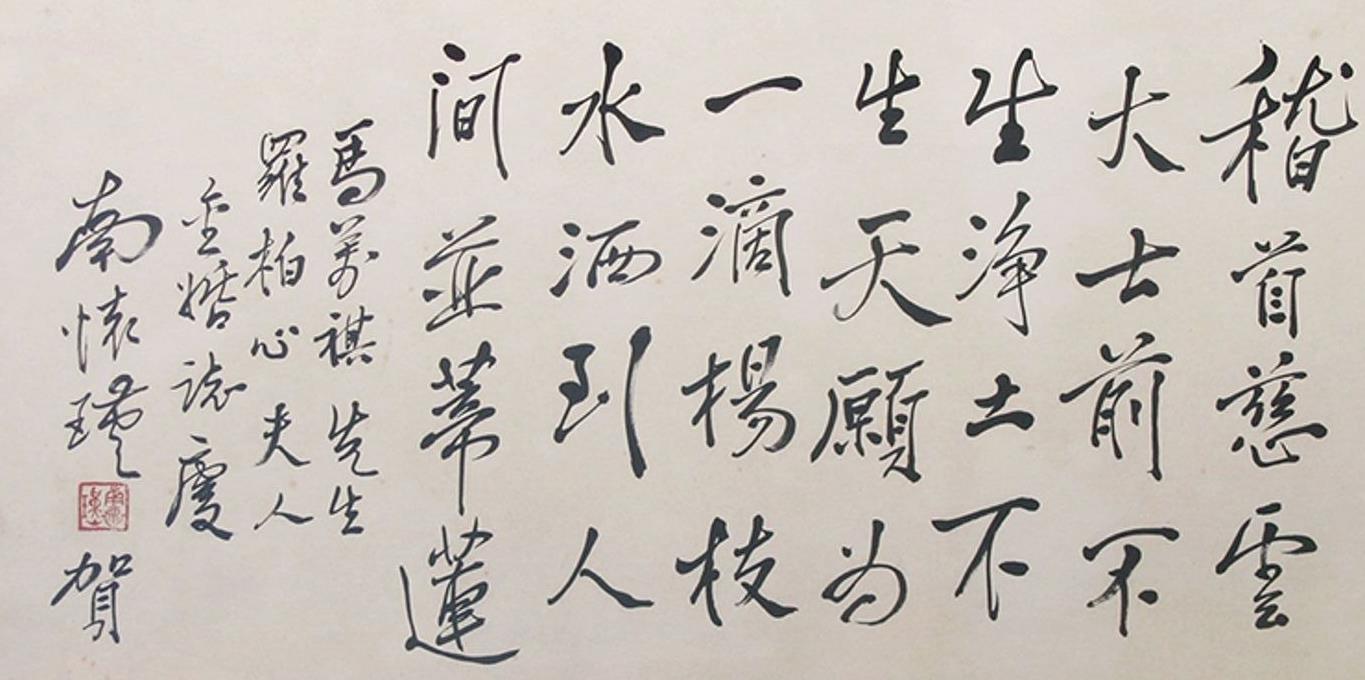 稽首慈雲
大士前不
生淨土不
生天願为
一滴楊枝
水洒到人
間並蒂蓮
馬萬祺先生
羅柏心夫人
金婚誌慶
南懷瑾賀